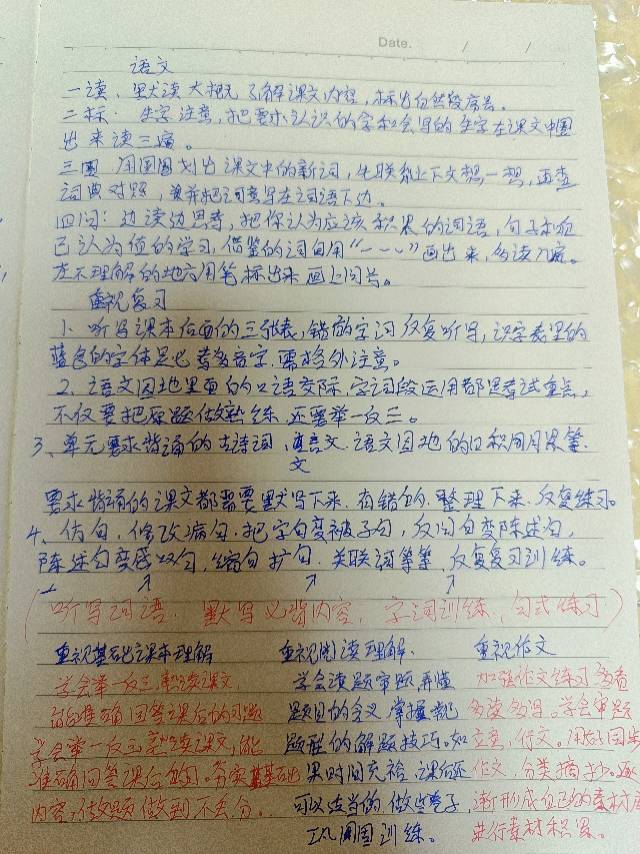 Date. / /
语文
一读、默读大概了解课文内容，标出自然段序号。
二标：生字注意，把要求认识的字和会写的生字在课文中圈
出来读三遍。
三圈 用圆圈划出课文中的新词，先联系上下文想一想，再查
词典对照，并把词意写在词语下边。
四问：边读边思考，把你认为应该积累的词语，句子和自
己认为值的学习，借鉴的词句用“﹏﹏”画出来，多读几遍。
在不理解的地方用笔标出来画上问号。
重视复习
1、听写课本后面的三张表，错的字词反复听写，识字表里的
蓝色的字体是多音字，需格外注意。
2、语文园地里面的口语交际，字词段运用都是考试重点，
不仅要把原题做熟练，还要举一反三。
3、单元要求背诵的古诗词，文言文，语文园地的日积月累等，
要求背诵的课文都需要默写下来，有错的，整理下来，反复练习。
4、仿句，修改病句，把字句变被字句，反问句变陈述句，
陈述句变感叹句，缩句扩句，关联词等等，反复复习训练。
（听写词语，默写必背内容，字词训练，句式练习）
重视基础课本理解 重视阅读理解. 重视作文
学会举一反三，熟读课文 学会读题审题，弄懂 加强作文练习多看
能准确回答课后的习题 题目的含义 掌握 多读多写。学会审题
学会举一反三熟读课文，能 题型的解题技巧。如 立意，行文。
准确回答课后 果时间充裕，课后还 作文，分类摘抄。
内容，做题做到不丢分。 可以适当的做些卷子， 渐形成自己的素材库
巩固训练。 进行素材积累。